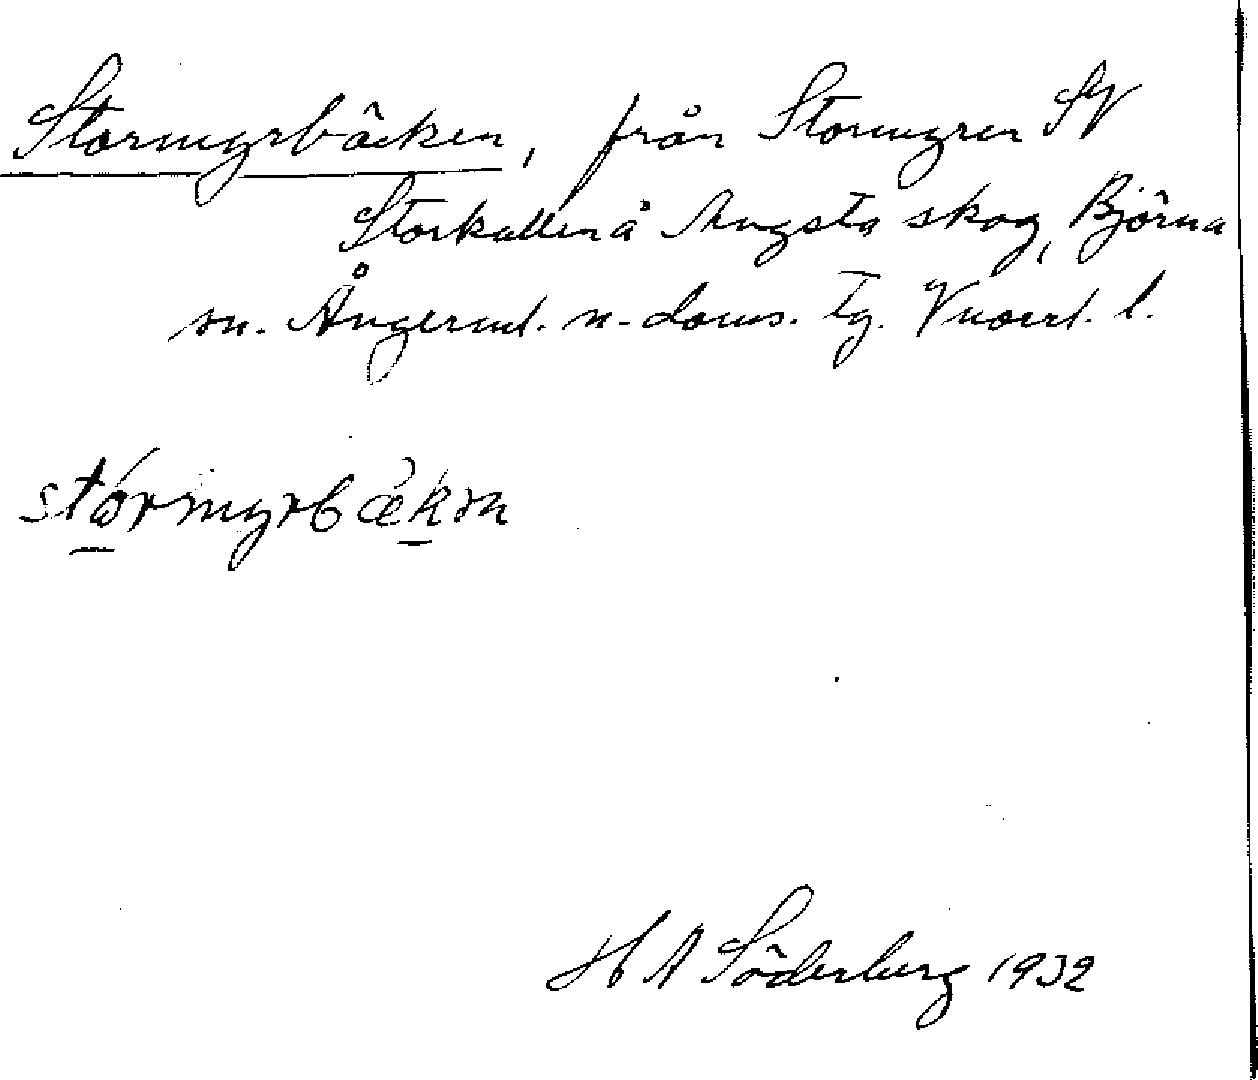 Stormyrbäcken, från Stormyren SV
Storkallen å Ängsta skog, Björna
sn. Ångerml. n. doms. tg. Vnorrl. l.
stórmyrbækɳ
H A Söderberg 1932